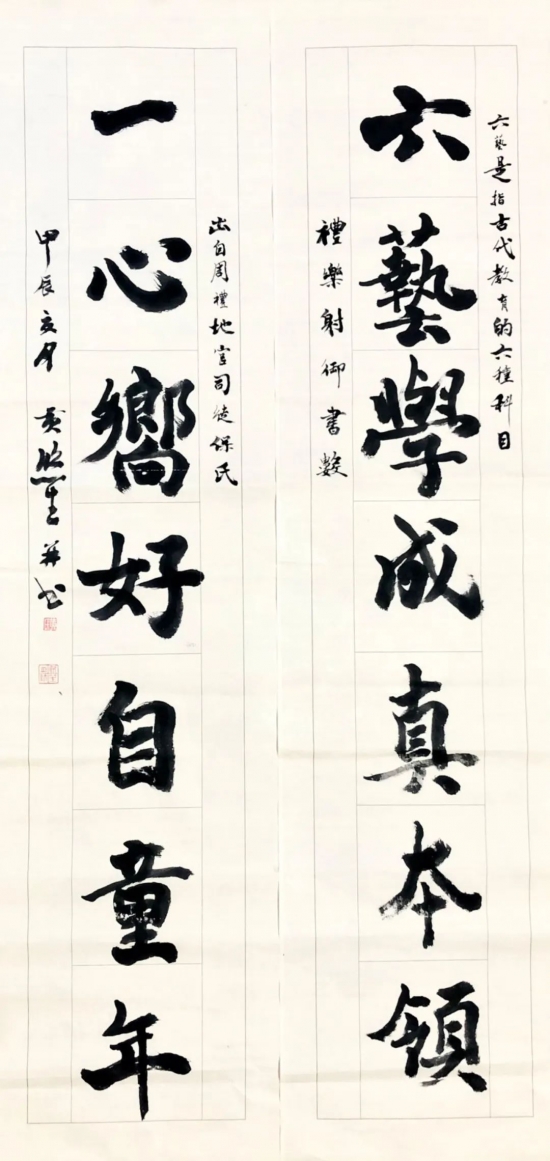 六藝是指古代教育的六種科目
六藝學成真本領
禮樂射御書數
出自周禮地官司徒保氏
一心嚮好自童年
甲辰亥月 黃 並书